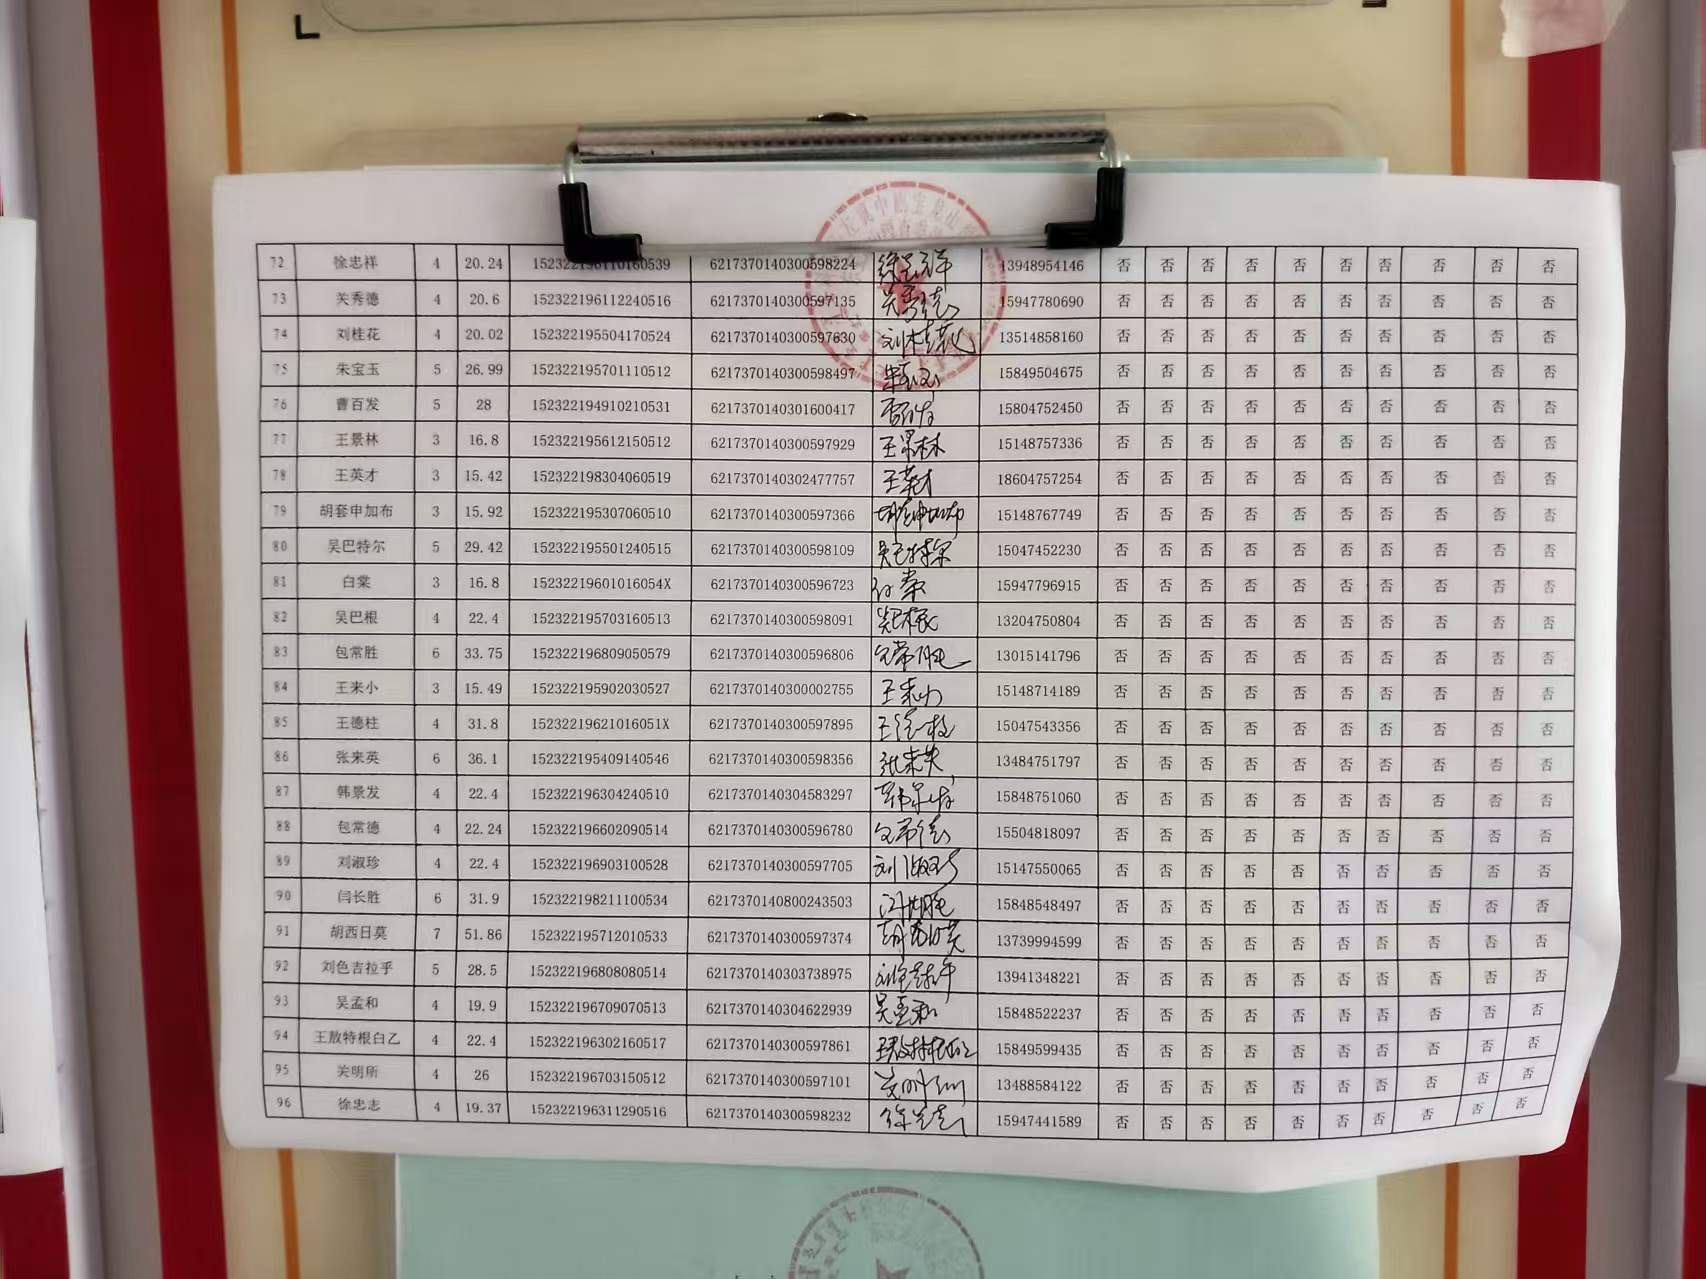 72 徐忠祥 4 20.24 152322196110160539 6217370140300598224 徐忠祥 13948954146 否 否 否 否 否 否 否 否 否 否
73 关秀德 4 20.6 152322196112240516 6217370140300597135 关秀德 15947780690 否 否 否 否 否 否 否 否 否 否
74 刘桂花 4 20.02 152322195504170524 6217370140300597630 刘桂花 13514858160 否 否 否 否 否 否 否 否 否 否
75 朱宝玉 5 26.99 152322195701110512 6217370140300598497 朱宝玉 15849504675 否 否 否 否 否 否 否 否 否 否
76 曹百发 5 28 152322194910210531 6217370140301600417 曹百发 15804752450 否 否 否 否 否 否 否 否 否 否
77 王景林 3 16.8 152322195612150512 6217370140300597929 王景林 15148757336 否 否 否 否 否 否 否 否 否 否
78 王英才 3 15.42 152322198304060519 6217370140302477757 王英才 18604757254 否 否 否 否 否 否 否 否 否 否
79 胡套申加布 3 15.92 152322195307060510 6217370140300597366 胡套申加布 15148767749 否 否 否 否 否 否 否 否 否 否
80 吴巴特尔 5 29.42 152322195501240515 6217370140300598109 吴巴特尔 15047452230 否 否 否 否 否 否 否 否 否 否
81 白棠 3 16.8 15232219601016054X 6217370140300596723 白棠 15947796915 否 否 否 否 否 否 否 否 否 否
82 吴巴根 4 22.4 152322195703160513 6217370140300598091 吴巴根 13204750804 否 否 否 否 否 否 否 否 否 否
83 包常胜 6 33.75 152322196809050579 6217370140300596806 包常胜 13015141796 否 否 否 否 否 否 否 否 否 否
84 王来小 3 15.49 152322195902030527 6217370140300002755 王来小 15148714189 否 否 否 否 否 否 否 否 否 否
85 王德柱 4 31.8 15232219621016051X 6217370140300597895 王德柱 15047543356 否 否 否 否 否 否 否 否 否 否
86 张来英 6 36.1 152322195409140546 6217370140300598356 张来英 13484751797 否 否 否 否 否 否 否 否 否 否
87 韩景发 4 22.4 152322196304240510 6217370140304583297 韩景发 15848751060 否 否 否 否 否 否 否 否 否 否
88 包常德 4 22.24 152322196602090514 6217370140300596780 包常德 15504818097 否 否 否 否 否 否 否 否 否 否
89 刘淑珍 4 22.4 152322196903100528 6217370140300597705 刘淑珍 15147550065 否 否 否 否 否 否 否 否 否 否
90 闫长胜 6 31.9 152322198211100534 6217370140800243503 闫长胜 15848548497 否 否 否 否 否 否 否 否 否 否
91 胡西日莫 7 51.86 152322195712010533 6217370140300597374 胡西日莫 13739994599 否 否 否 否 否 否 否 否 否 否
92 刘色吉拉乎 5 28.5 152322196808080514 6217370140303738975 刘色吉拉乎 13941348221 否 否 否 否 否 否 否 否 否 否
93 吴孟和 4 19.9 152322196709070513 6217370140304622939 吴孟和 15848522237 否 否 否 否 否 否 否 否 否 否
94 王敖特根白乙 4 22.4 152322196302160517 6217370140300597861 王敖特根白乙 15849599435 否 否 否 否 否 否 否 否 否 否
95 关明所 4 26 152322196703150512 6217370140300597101 关明所 13488584122 否 否 否 否 否 否 否 否 否 否
96 徐忠志 4 19.37 152322196311290516 6217370140300598232 徐忠志 15947441589 否 否 否 否 否 否 否 否 否 否